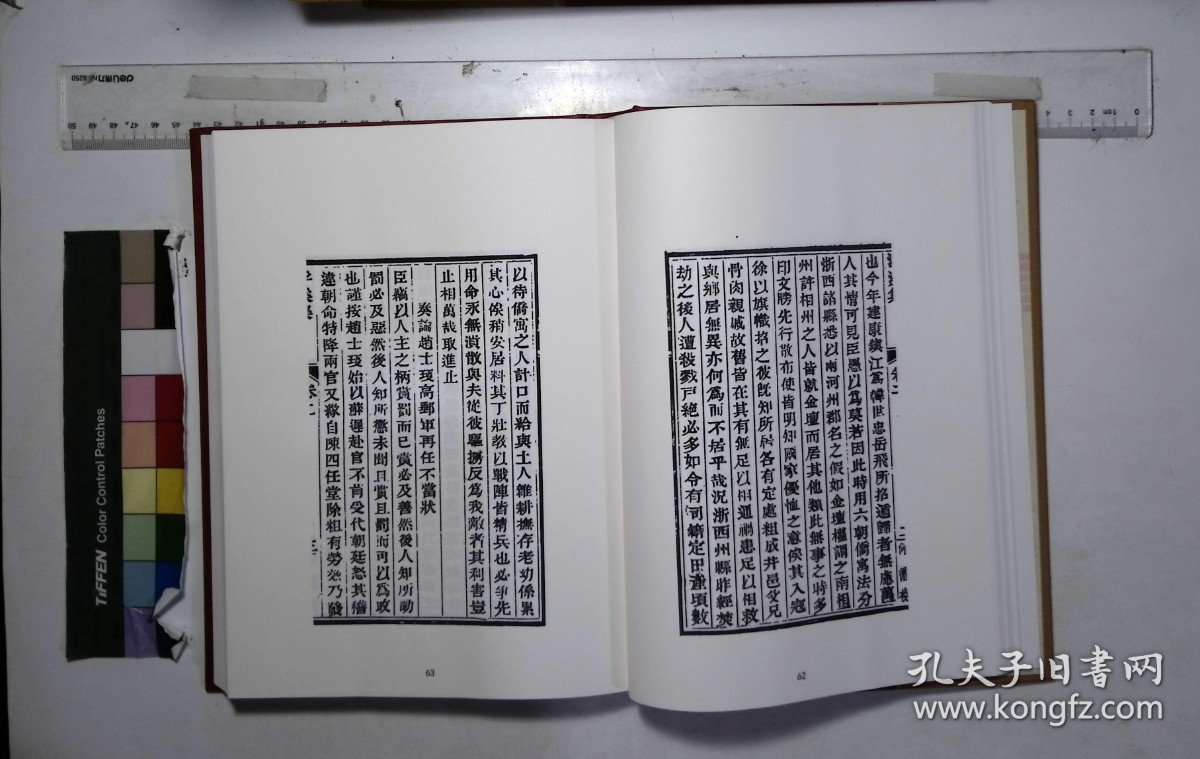 也今年建康鎮江爲韓世忠岳飛所招遁歸者無慮萬
人其情可見臣愚以爲莫若因此時用六朝僑寓法分
浙西諸縣悉以兩河州郡名之假如金壇權謂之南相
州許相州之人皆就金壇而居其他類此無事之時多
印文牓先行散布使皆明知國家優恤之意俟其入寇
徐以旗幟招之彼旣知所居各有定處粗成井邑父兄
骨肉親戚故舊皆在其有無足以相通禍患足以相救
與鄉居無異亦何爲而不居乎哉況浙西州縣昨經焚
劫之後人遭殺戮戸絕必多如令有司籍定田產頃數
62
以待僑寓之人計口而給與土人雜耕撫存老幼係累
其心俟稍安居料其丁壯敎以戰陣皆精兵也必爭先
用命永無潰散與夫從彼驅擄反爲我敵者其利害豈
止相萬哉取進止
奏論趙士㻒高郵軍再任不當狀
臣竊以人主之柄賞罰而已賞必及善然後人知所勸
罰必及惡然後人知所懲未聞且賞且罰而可以爲政
也謹按趙士㻒始以薜遲赴官不肯受代朝廷怒其稽
違朝命特降兩官又緣自陳四任堂除粗有勞效乃發
63
deli得力 No 6250
50 49 48 47 46 45
4 3 2 1cm 0
TIFFEN Color Control Patches
孔夫子旧書网
www.kongfz.com